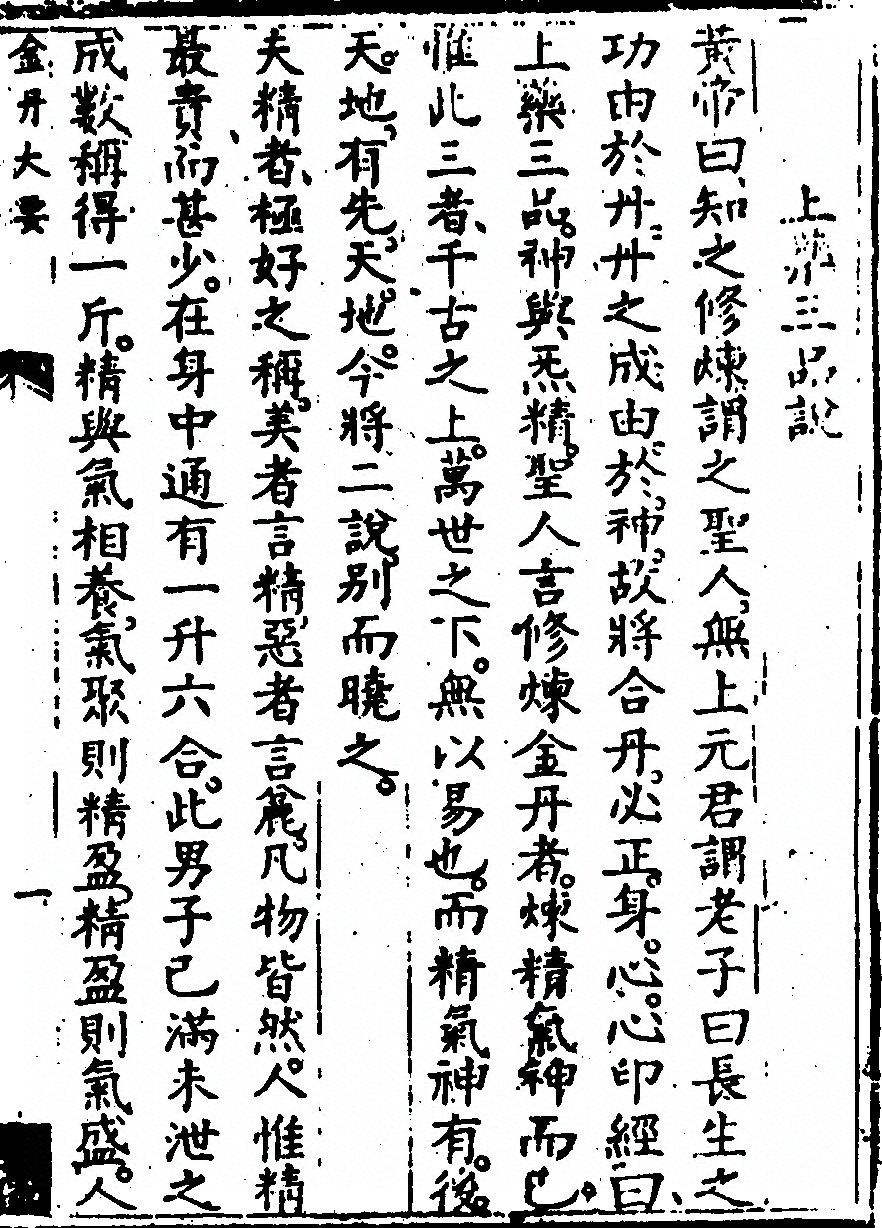 上藥三品說
黃帝曰知之修煉謂之聖人無上元君謂老子曰長生之
功由於丹丹之成由於神故將合丹必正身心心印經曰
上藥三品神與炁精聖人言修煉金丹者煉精氣神而已
惟此三者千古之上萬世之下無以易也而精氣神有後
天地有先天地今將二說別而曉之
夫精者極好之稱美者言精惡者言麄凡物皆然人惟精
最貴而甚少在身中通有一升六合此男子已滿未泄之
成數稱得一斤精與氣相養氣聚則精盈精盈則氣盛人
金丹大要
一